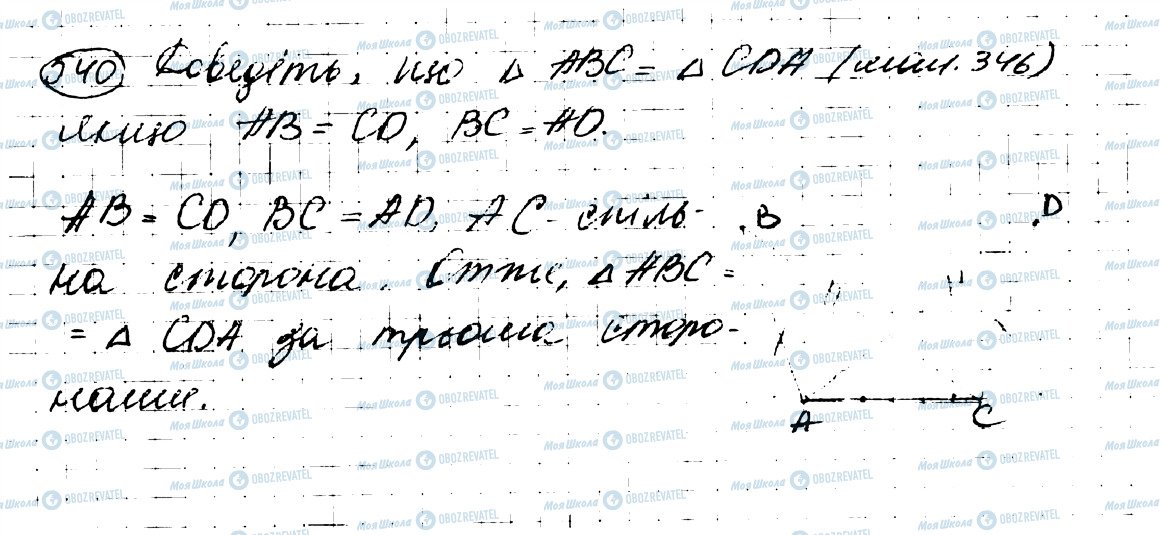 540. Доведіть, що △ ABC = △ CDA (мал. 346)
якщо AB = CD, BC = AD.
AB = CD, BC = AD, AC - спіль-
на сторона. Отже, △ ABC =
= △ CDA за трьома сторо-
нами.
B
D
A
C